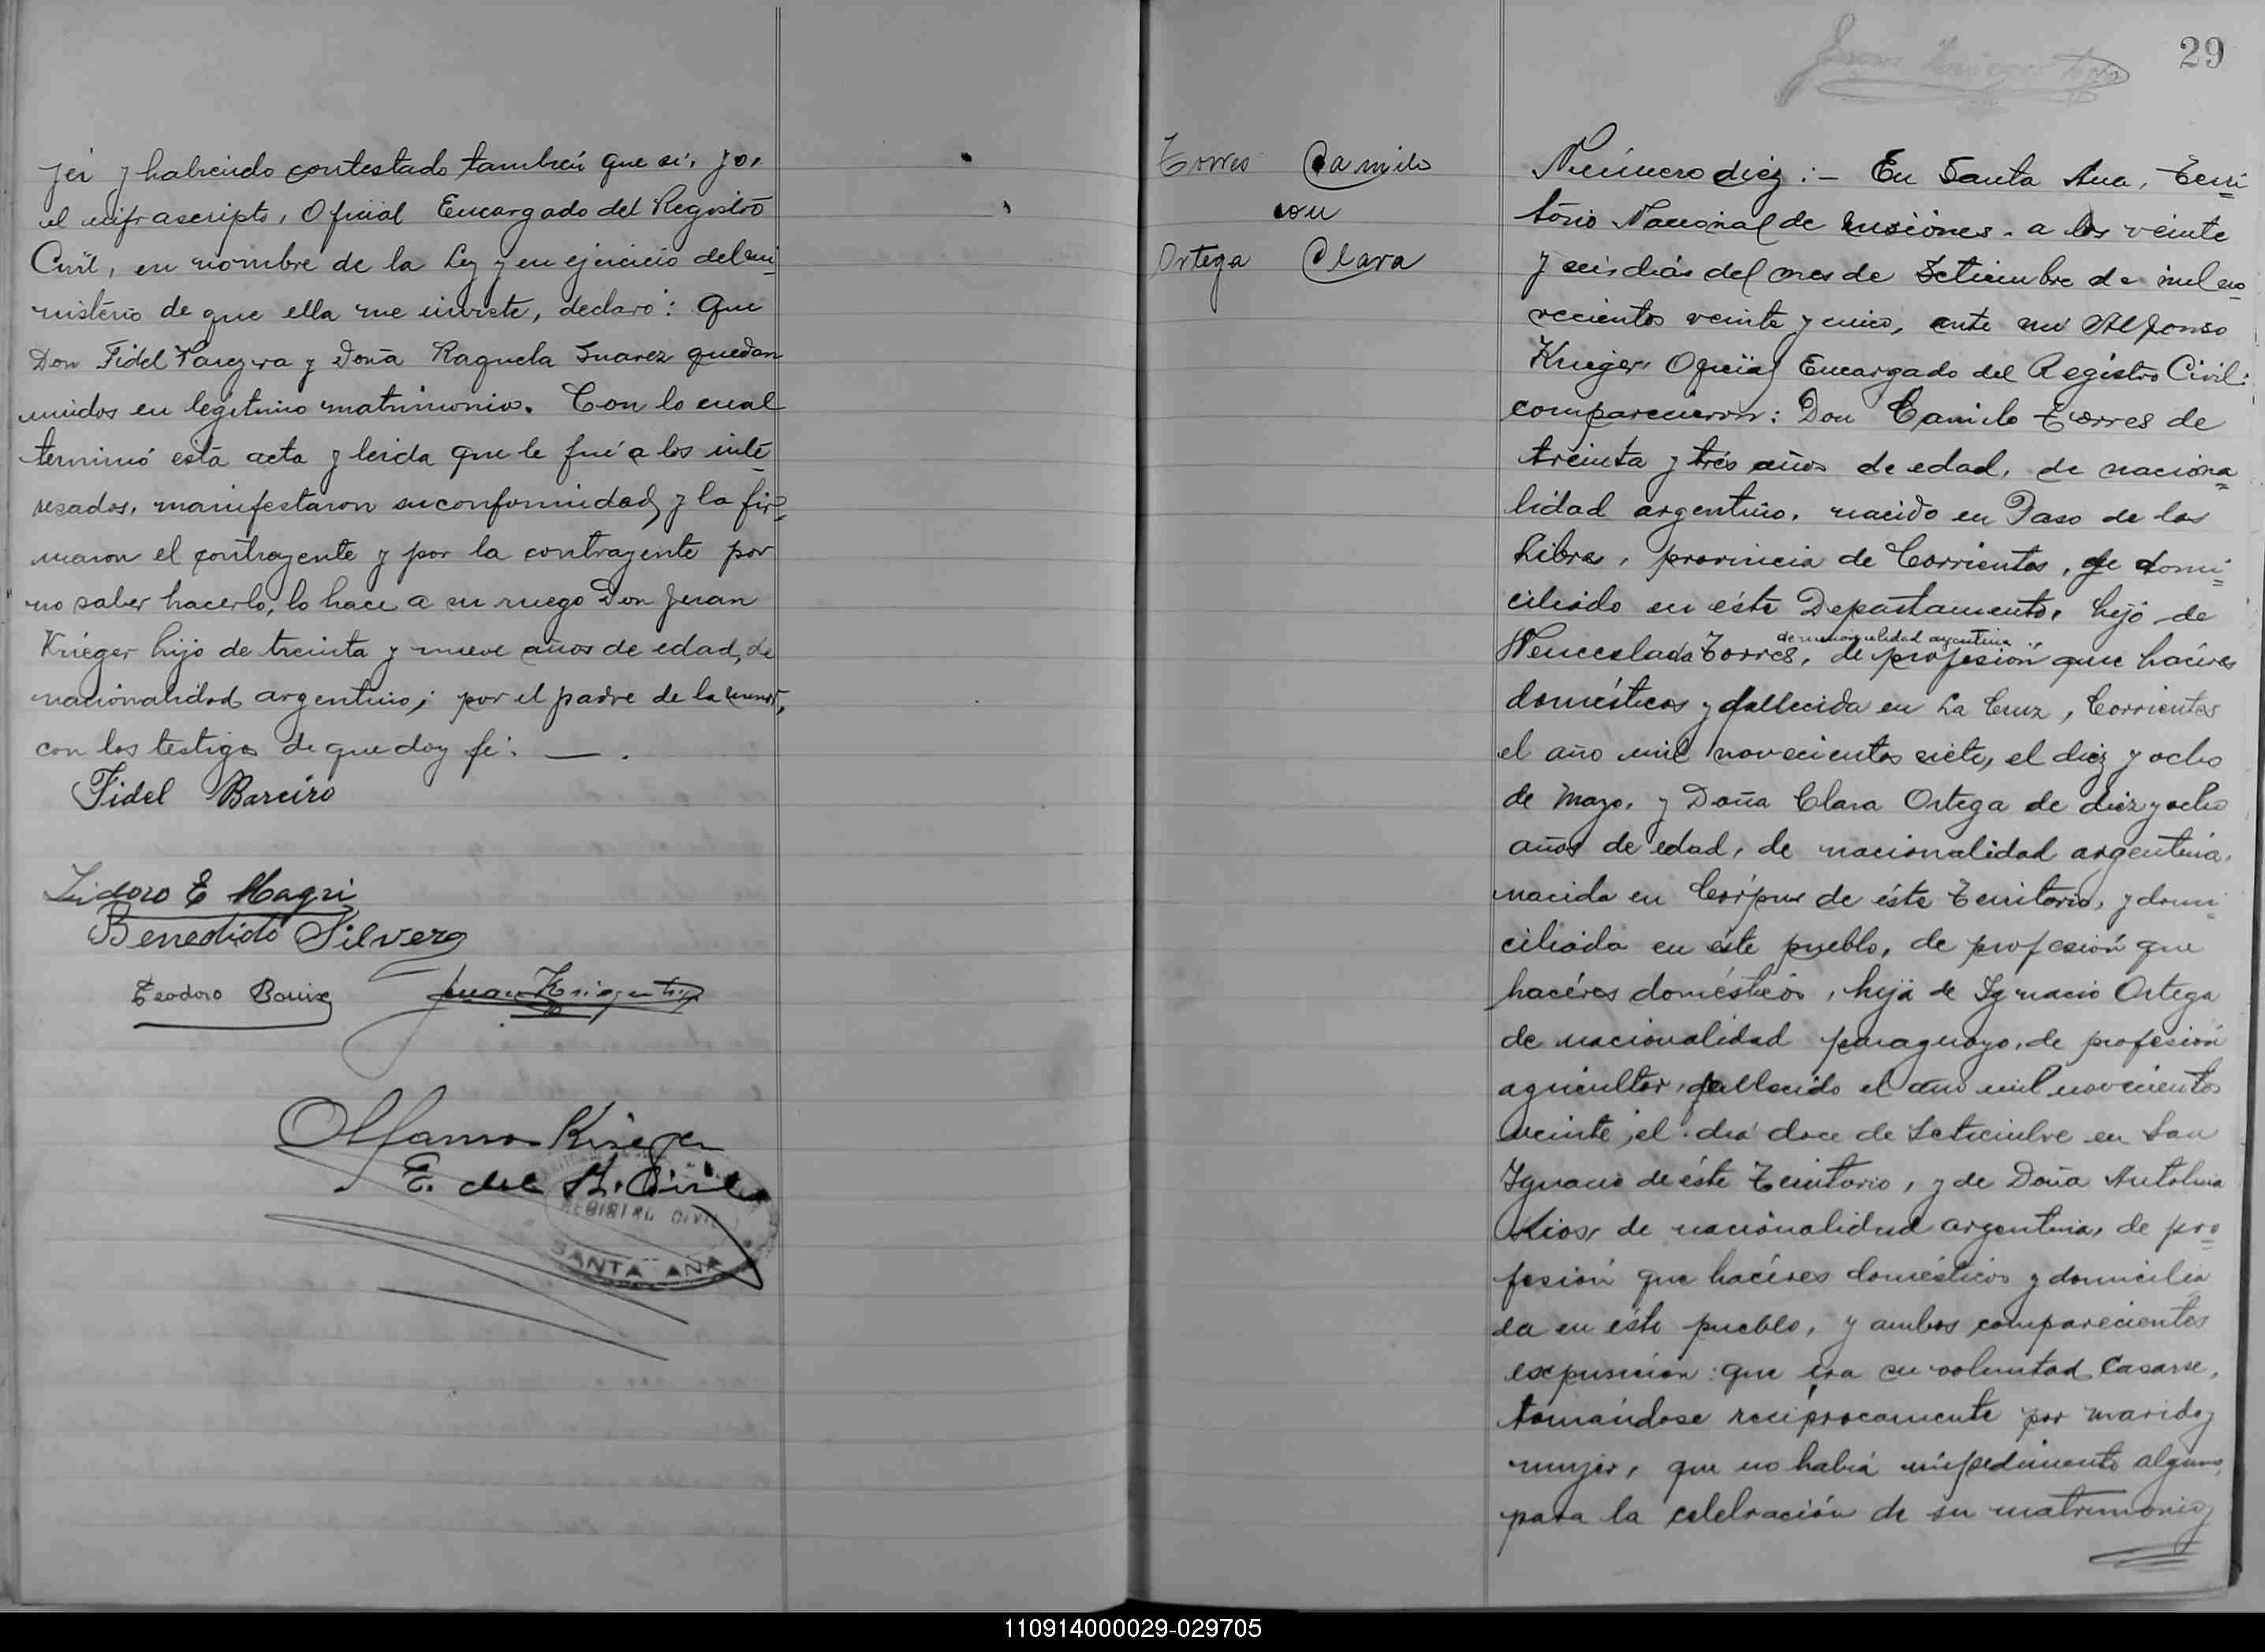 jer y habiendo contestado también que sí, yo,
el infrascripto, Oficial Encargado del Registro
Civil, en nombre de la Ley y en ejercicio del mi-
nisterio de que ella me inviste, declaro: que
Don Fidel y Doña Raquela Suarez quedan
unidos en legítimo matrimonio. Con lo cual
terminó esta acta y leida que le fué a los inte-
resados, manifestaron su conformidad, y la fir-
maron el contrayente y por la contrayente por
no saber hacerlo, lo hace a su ruego Don Juan
Krieger hijo de treinta y nueve años de edad, de
nacionalidad argentino; por el padre de la menor,
con los testigos de que doy fé. — .
Fidel Bareiro
Isidoro E Magri
Benedido Silvero
Teodoro
Juan Krieger hijo
Alfonso Krieger
E. del R. Civil
REGISTRO CIVIL
SANTA ANA
29
Torres Camilo
con
Ortega Clara
Número diez :- En Santa Ana, Terri=
torio Nacional de Misiones, a los veinte
y seis días del mes de Setiembre de mil no=
vecientos veinte y cinco, ante mí Alfonso
Krieger, Oficial Encargado del Registro Civil:
comparecieron: Don Camilo Torres de
treinta y trés años de edad, de naciona=
lidad argentino, nacido en Paso de los
Libres, provincia de Corrientes, de domi=
ciliado en éste Departamento, hijo de
de nacionalidad argentina
Wenceslada Torres, de profesión que hacéres
domésticos y fallecida en La Cruz, Corrientes
el año mil novecientos siete, el diez y ocho
de Mayo, y Doña Clara Ortega de diez y ocho
años de edad, de nacionalidad argentina,
nacida en Córpus de éste Territorio, y domi=
ciliada en éste pueblo, de profesión que
hacéres domésticos, hija de Ignacio Ortega
de nacionalidad paraguayo, de profesión
agricultor, fallecido el año mil novecientos
veinte, el día doce de Setiembre en San
Ignacio de éste Territorio, y de Doña Antolina
Rios, de nacionalidad argentina, de pro=
fesión que hacéres domésticos y domicilia
da en éste pueblo, y ambos comparecientes
expusieron: que era su voluntad casarse,
tomándose recíprocamente por marido y
mujer, que no había impedimento alguno
para la celebración de su matrimonio y
110914000029-029705